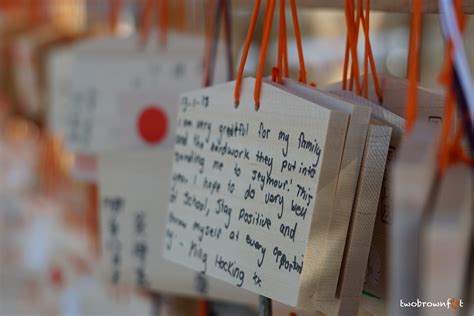 I am very greatful for my family
and the hardwork they put into
sending me to seymour! This
year I hope to do very well
at School, Stay Positive and
throw myself at every opportunity
- Kitty Hocking xx
twobrownfeet